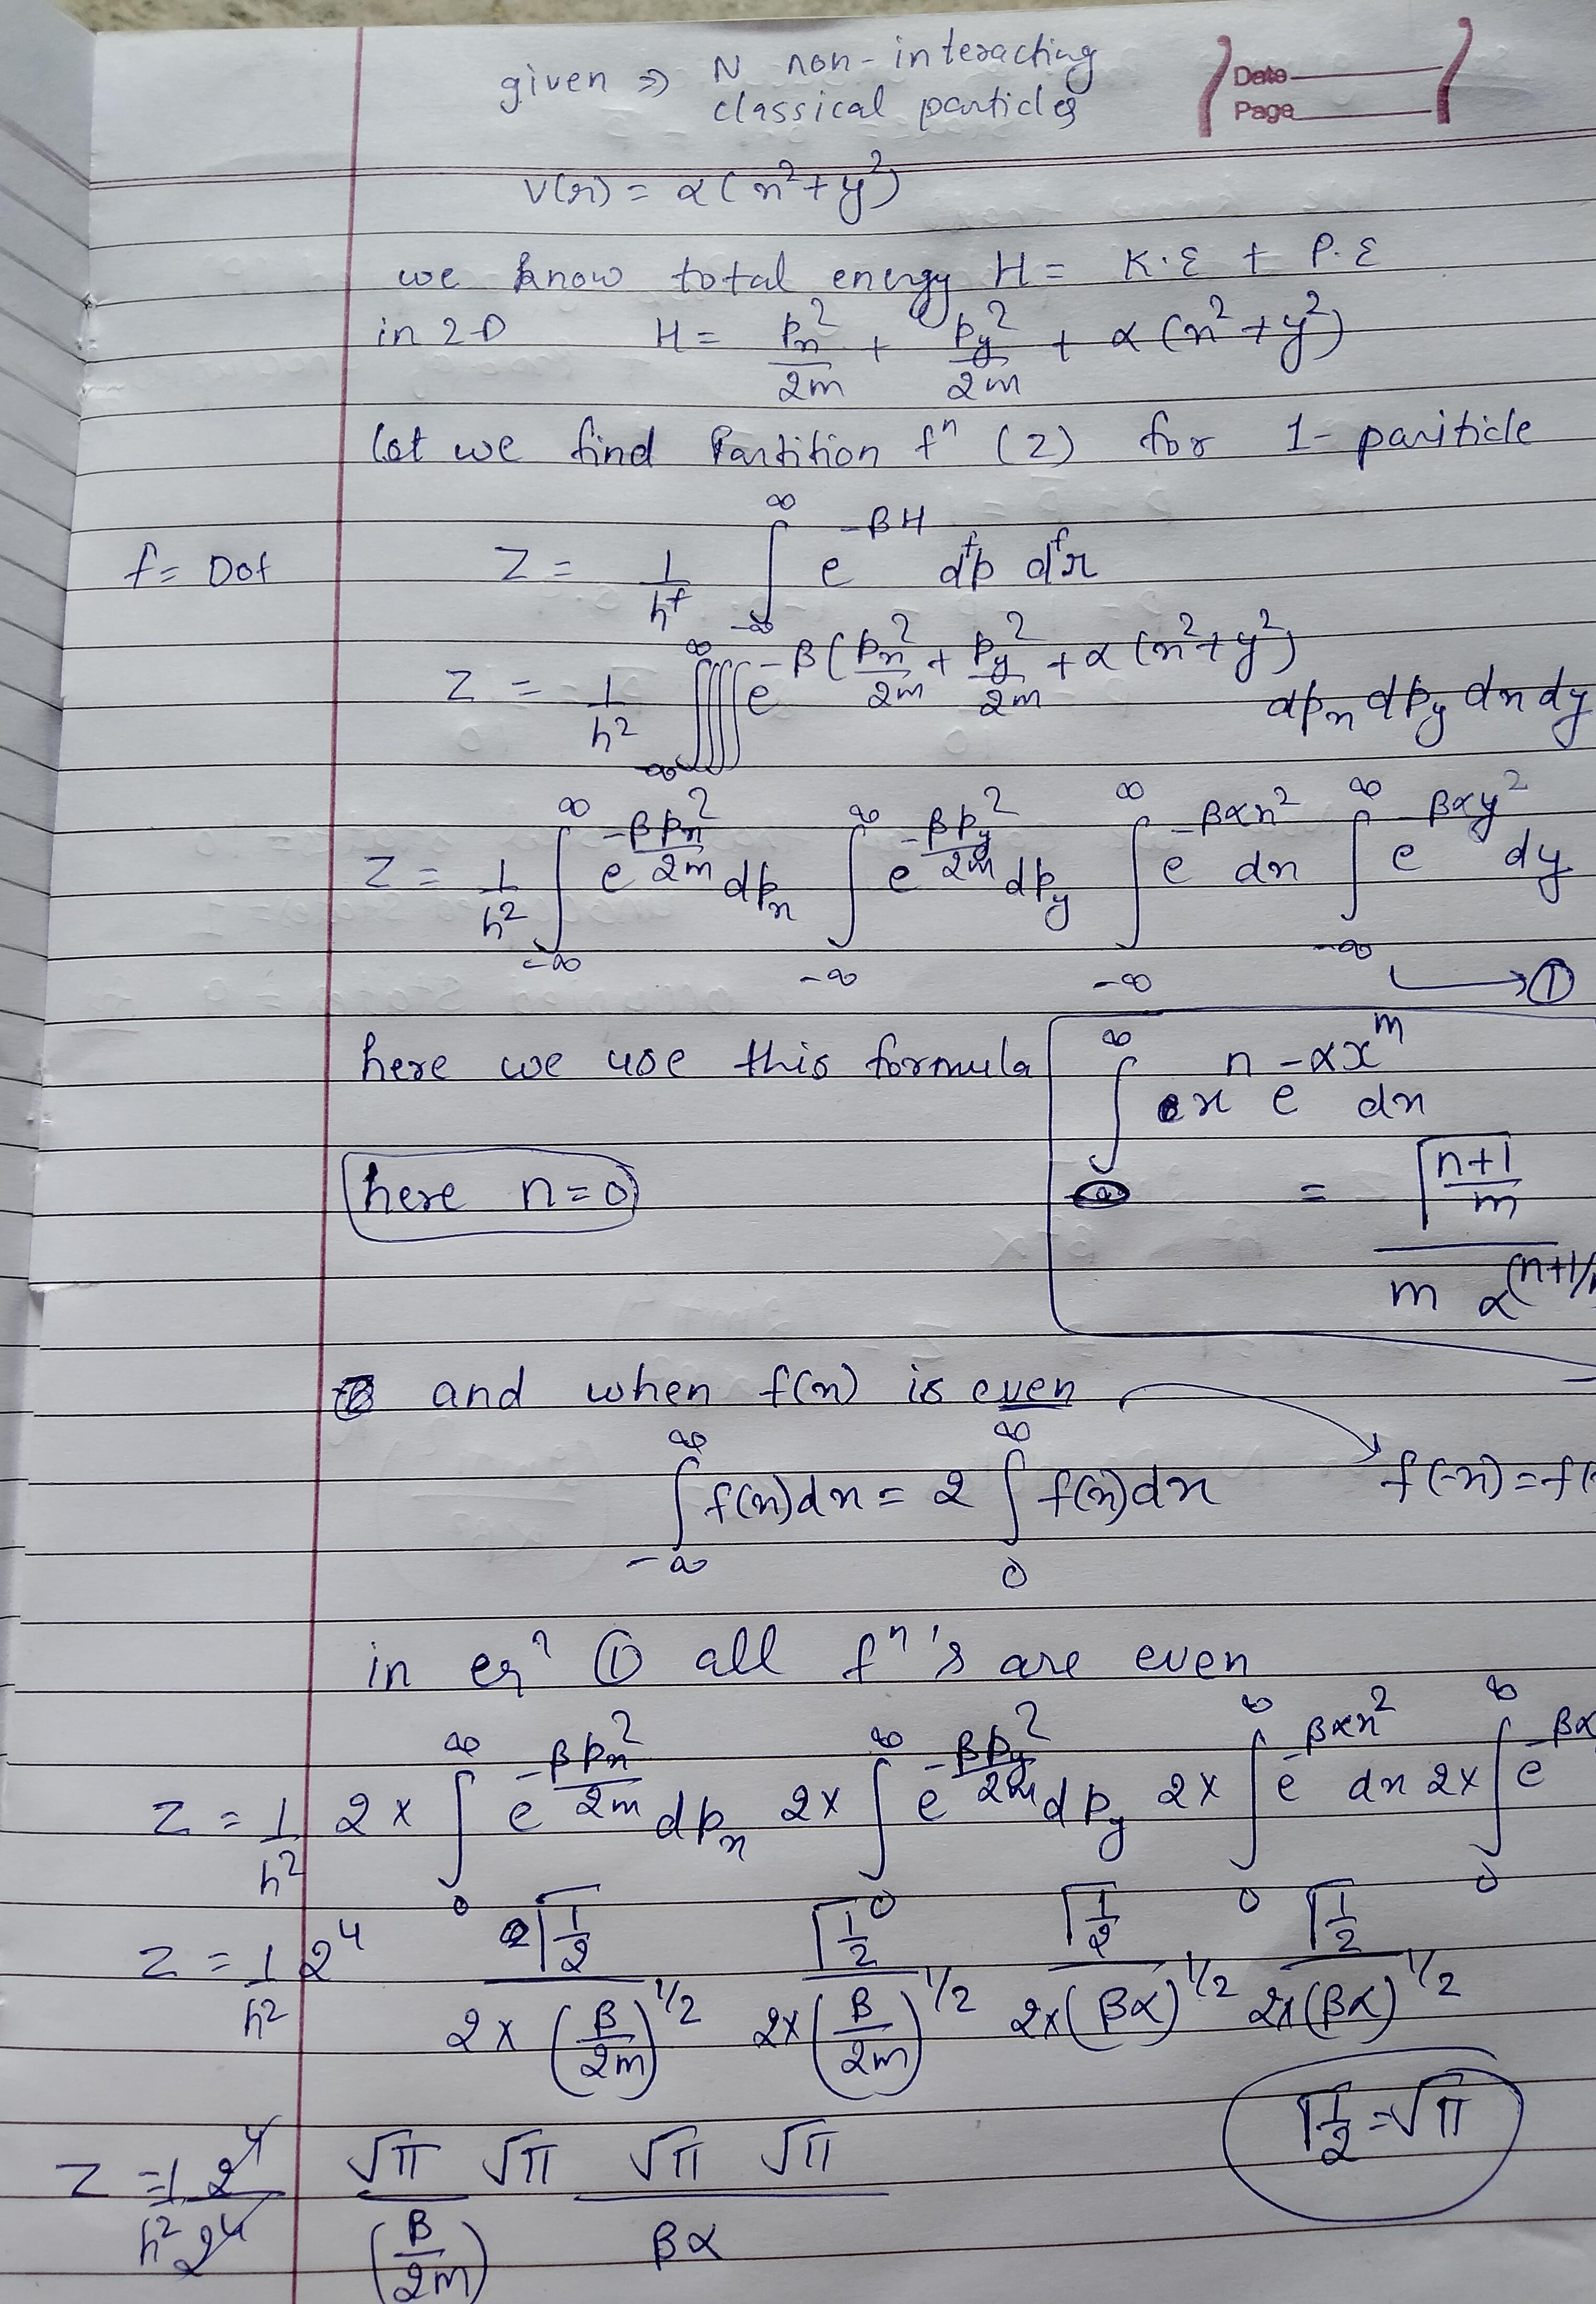 given ⇒ N non-interacting
classical particles
Date
Page
V(r) = α(x²+y²)
we know total energy H = K.E + P.E
in 2-D H = px²/2m + py²/2m + α(x²+y²)
let we find Partition fⁿ (Z) for 1-particle
f = Dof Z = 1/h^f ∫_{-∞}^{∞} e^{-βH} d^f p d^f x
Z = 1/h² ∫∫∫∫_{-∞}^{∞} e^{-β(px²/2m + py²/2m + α(x²+y²)} dpx dpy dx dy
Z = 1/h² ∫_{-∞}^{∞} e^{-βpx²/2m} dpx ∫_{-∞}^{∞} e^{-βpy²/2m} dpy ∫_{-∞}^{∞} e^{-βαx²} dx ∫_{-∞}^{∞} e^{-βαy²} dy
→ ①
here we use this formula ∫^{∞} x^n e^{-αx^m} dx
here n=0 = Γ(n+1)/m / m α^(n+1/
and when f(x) is even
∫_{-∞}^{∞} f(x)dx = 2 ∫_{0}^{∞} f(x)dx f(-x) = f(
in eqⁿ ① all fⁿ's are even
Z = 1/h² 2× ∫_{0}^{∞} e^{-βpx²/2m} dpx 2× ∫_{0}^{∞} e^{-βpy²/2m} dpy 2× ∫_{0}^{∞} e^{-βαx²} dx 2× ∫_{0}^{∞} e^{-βα
Z = 1/h² 2⁴ Γ1/2 / 2×(β/2m)^{1/2} Γ1/2 / 2×(β/2m)^{1/2} Γ1/2 / 2×(βα)^{1/2} Γ1/2 / 2×(βα)^{1/2}
Γ1/2 = √π
Z = 1/h² 2⁴/2⁴ √π √π / (β/2m) √π √π / βα